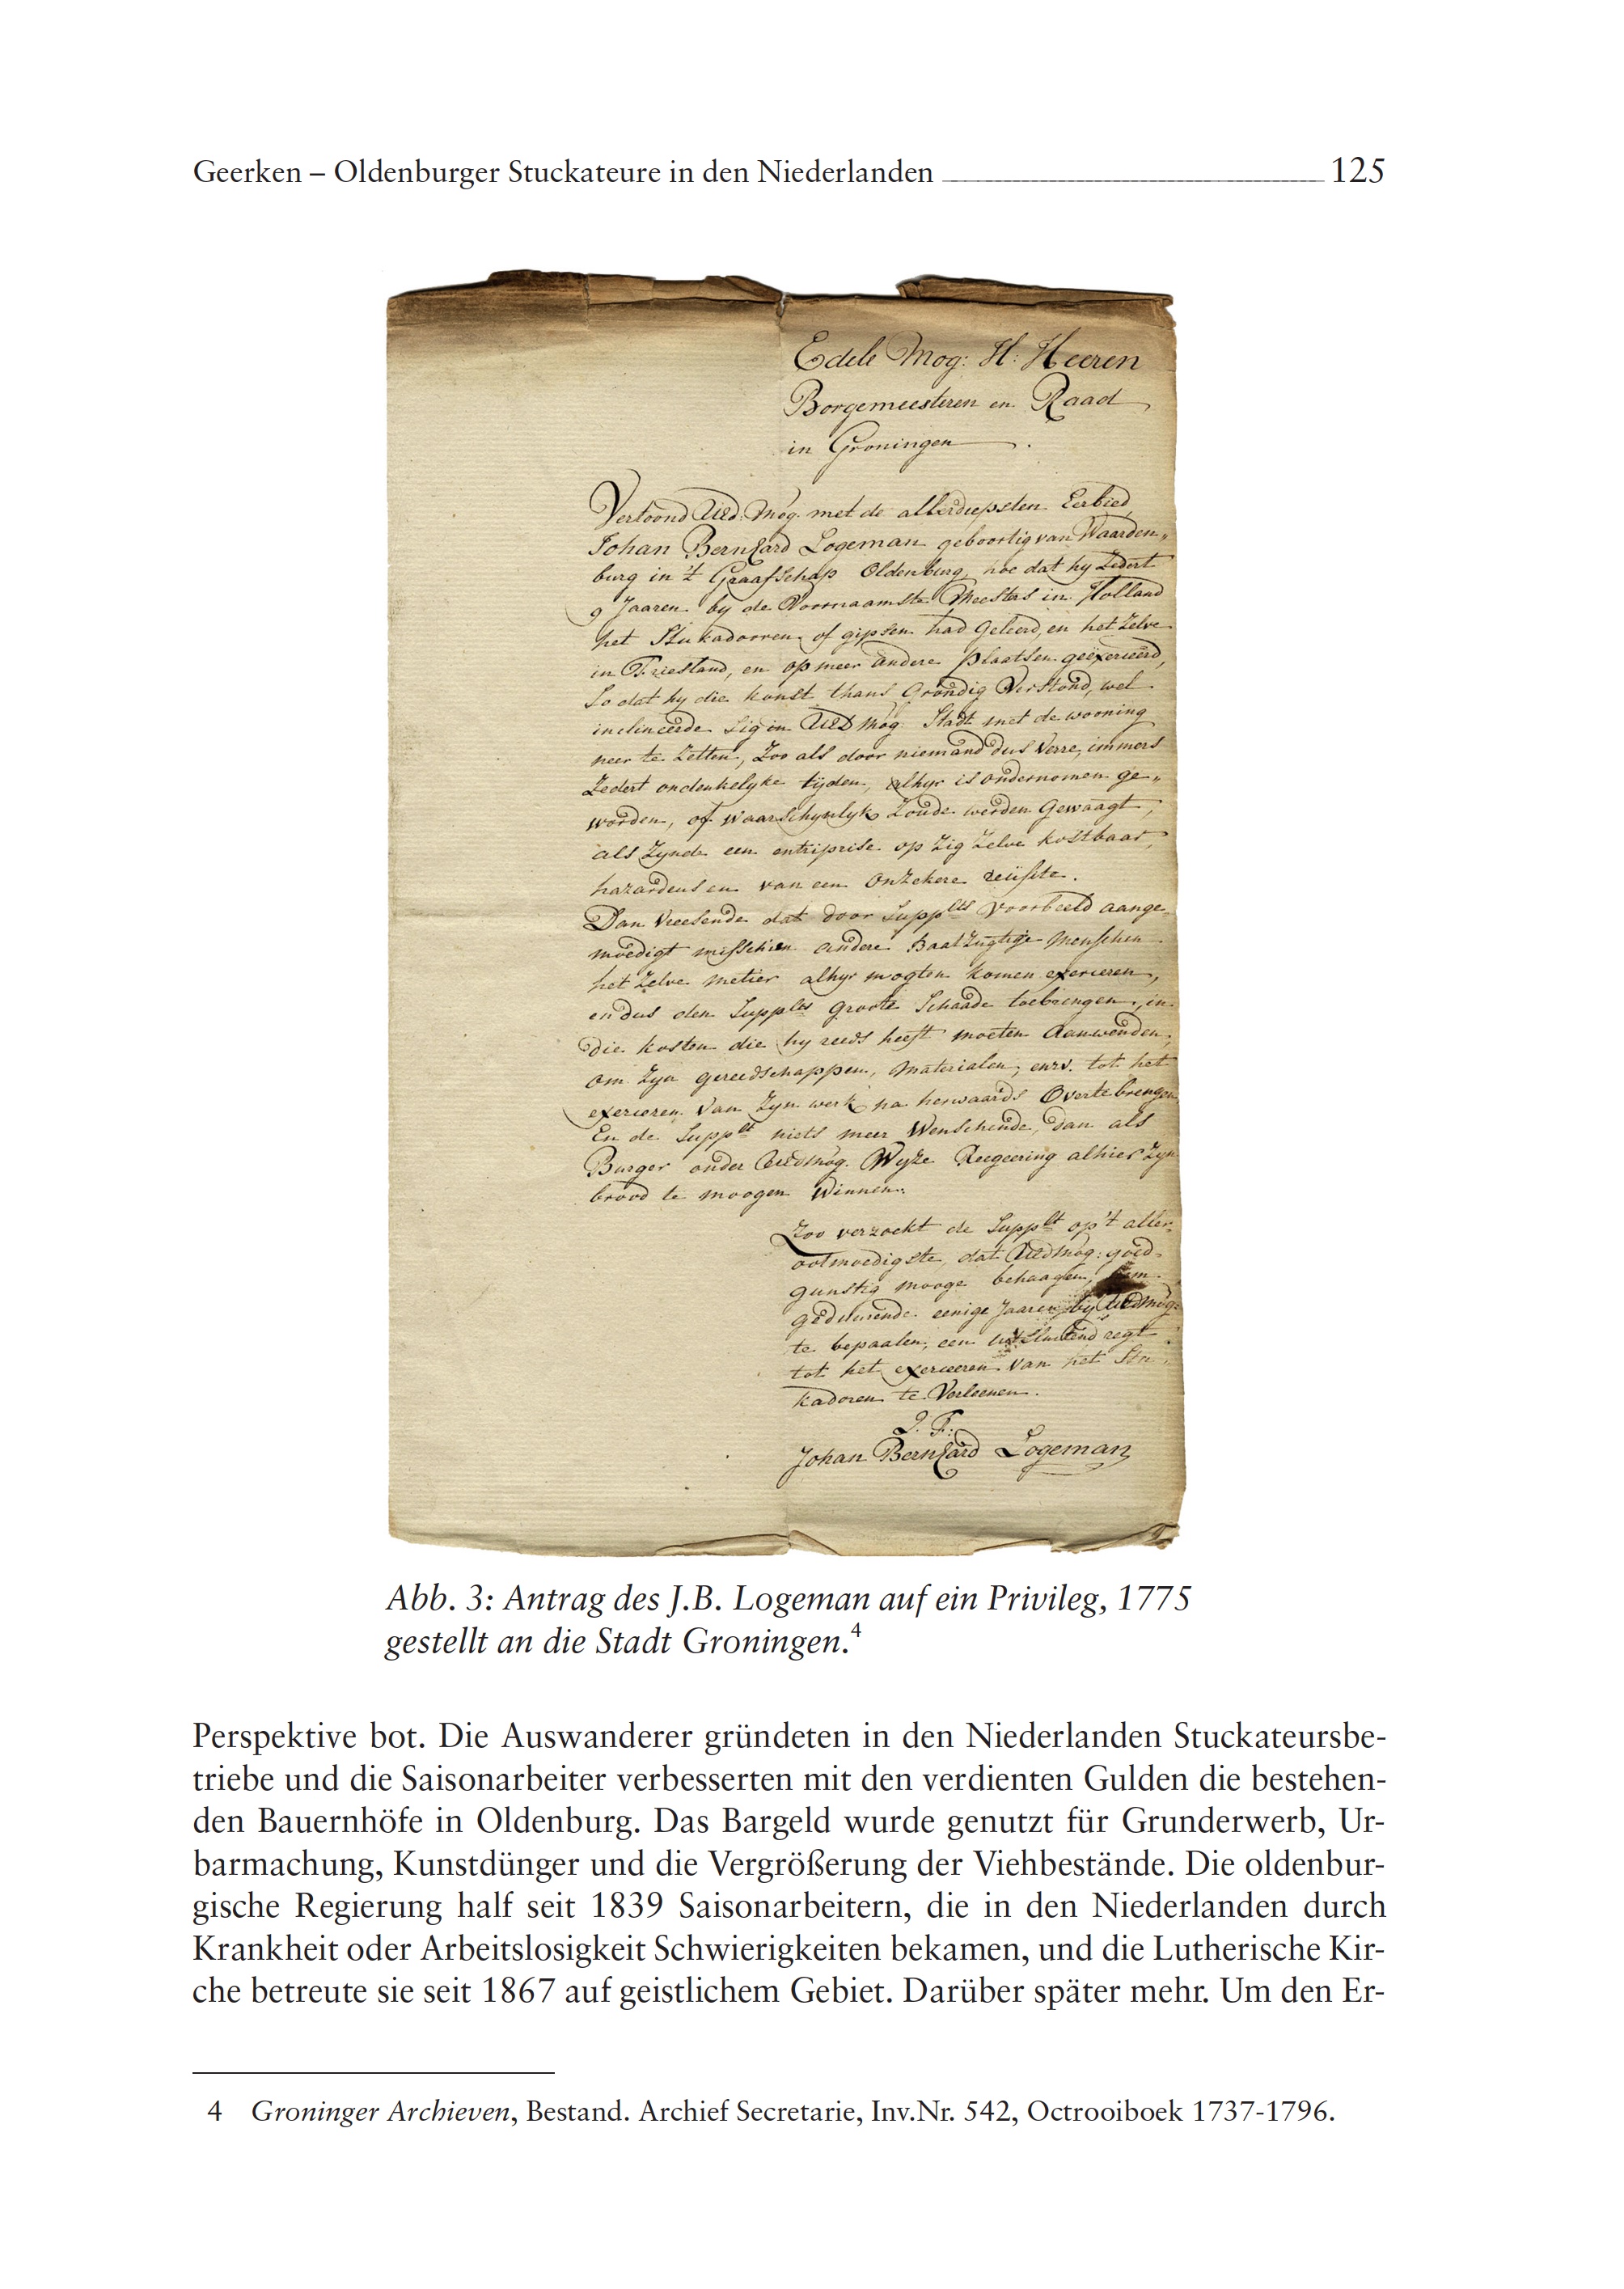 Geerken – Oldenburger Stuckateure in den Niederlanden 125
Edele Mog: H: Heeren
Borgemeesteren en Raad
in Groningen.
Vertoond UEd. Mog. met de allerdiepsten Eerbied,
Johan Bernhard Logeman geboortig van Waarden„
burg in 't Graafschap Oldenburg, hoe dat hy zedert
9 Jaaren by de Voornaamste Meesters in Holland
het Stukadooren of gipsen had Geleerd, en het zelve
in Friesland, en op meer andere plaatsen geëxerceerd,
So dat hy die konst thans Grondig Verstond, wel
inclineerde sig in UEd Mog. Stadt met de wooning
neer te zetten, Zoo als door niemand dus verre, immers
Zedert ondenkelyke tyden, alhyr is ondernomen ge„
worden, of waarschynlyk Zoude werden Gewaagt,
als zynde een entriprise op Zig Zelve kostbaar,
hazardeus en van een Onzekere reüssite.
Dan Vreesende dat door Supplts voorbeeld aange„
moedigt misschien andere Baatzugtige Menschen
het Zelve metier alhyr mogten komen exerceren,
en dus den Supplts groote Schaade toebrengen, in
die kosten die hy reeds heeft moeten Aanwenden,
om Zyn gereedschappen, Materialen, enzv. tot het
exerceren van Zyn werk na herwaards Over te brengen,
En de Supplt niets meer Wenschende, dan als
Burger onder UEdMog. Wyze Regeering alhier Zyn
brood te moogen Winnen.
Zoo verzoekt de Supplt op 't aller„
ootmoedigste, dat UEdMog: goed„
gunstig mooge behaagen, hem
geduurende eenige Jaaren by UEdMog:
te bepaalen, een uitsluitend regt
tot het exerceeren van het Stu„
kadoren te Verleenen.
Q. F:
Johan Bernhard Logeman
Abb. 3: Antrag des J.B. Logeman auf ein Privileg, 1775
gestellt an die Stadt Groningen.4
Perspektive bot. Die Auswanderer gründeten in den Niederlanden Stuckateursbe-
triebe und die Saisonarbeiter verbesserten mit den verdienten Gulden die bestehen-
den Bauernhöfe in Oldenburg. Das Bargeld wurde genutzt für Grunderwerb, Ur-
barmachung, Kunstdünger und die Vergrößerung der Viehbestände. Die oldenbur-
gische Regierung half seit 1839 Saisonarbeitern, die in den Niederlanden durch
Krankheit oder Arbeitslosigkeit Schwierigkeiten bekamen, und die Lutherische Kir-
che betreute sie seit 1867 auf geistlichem Gebiet. Darüber später mehr. Um den Er-
4 Groninger Archieven, Bestand. Archief Secretarie, Inv.Nr. 542, Octrooiboek 1737-1796.